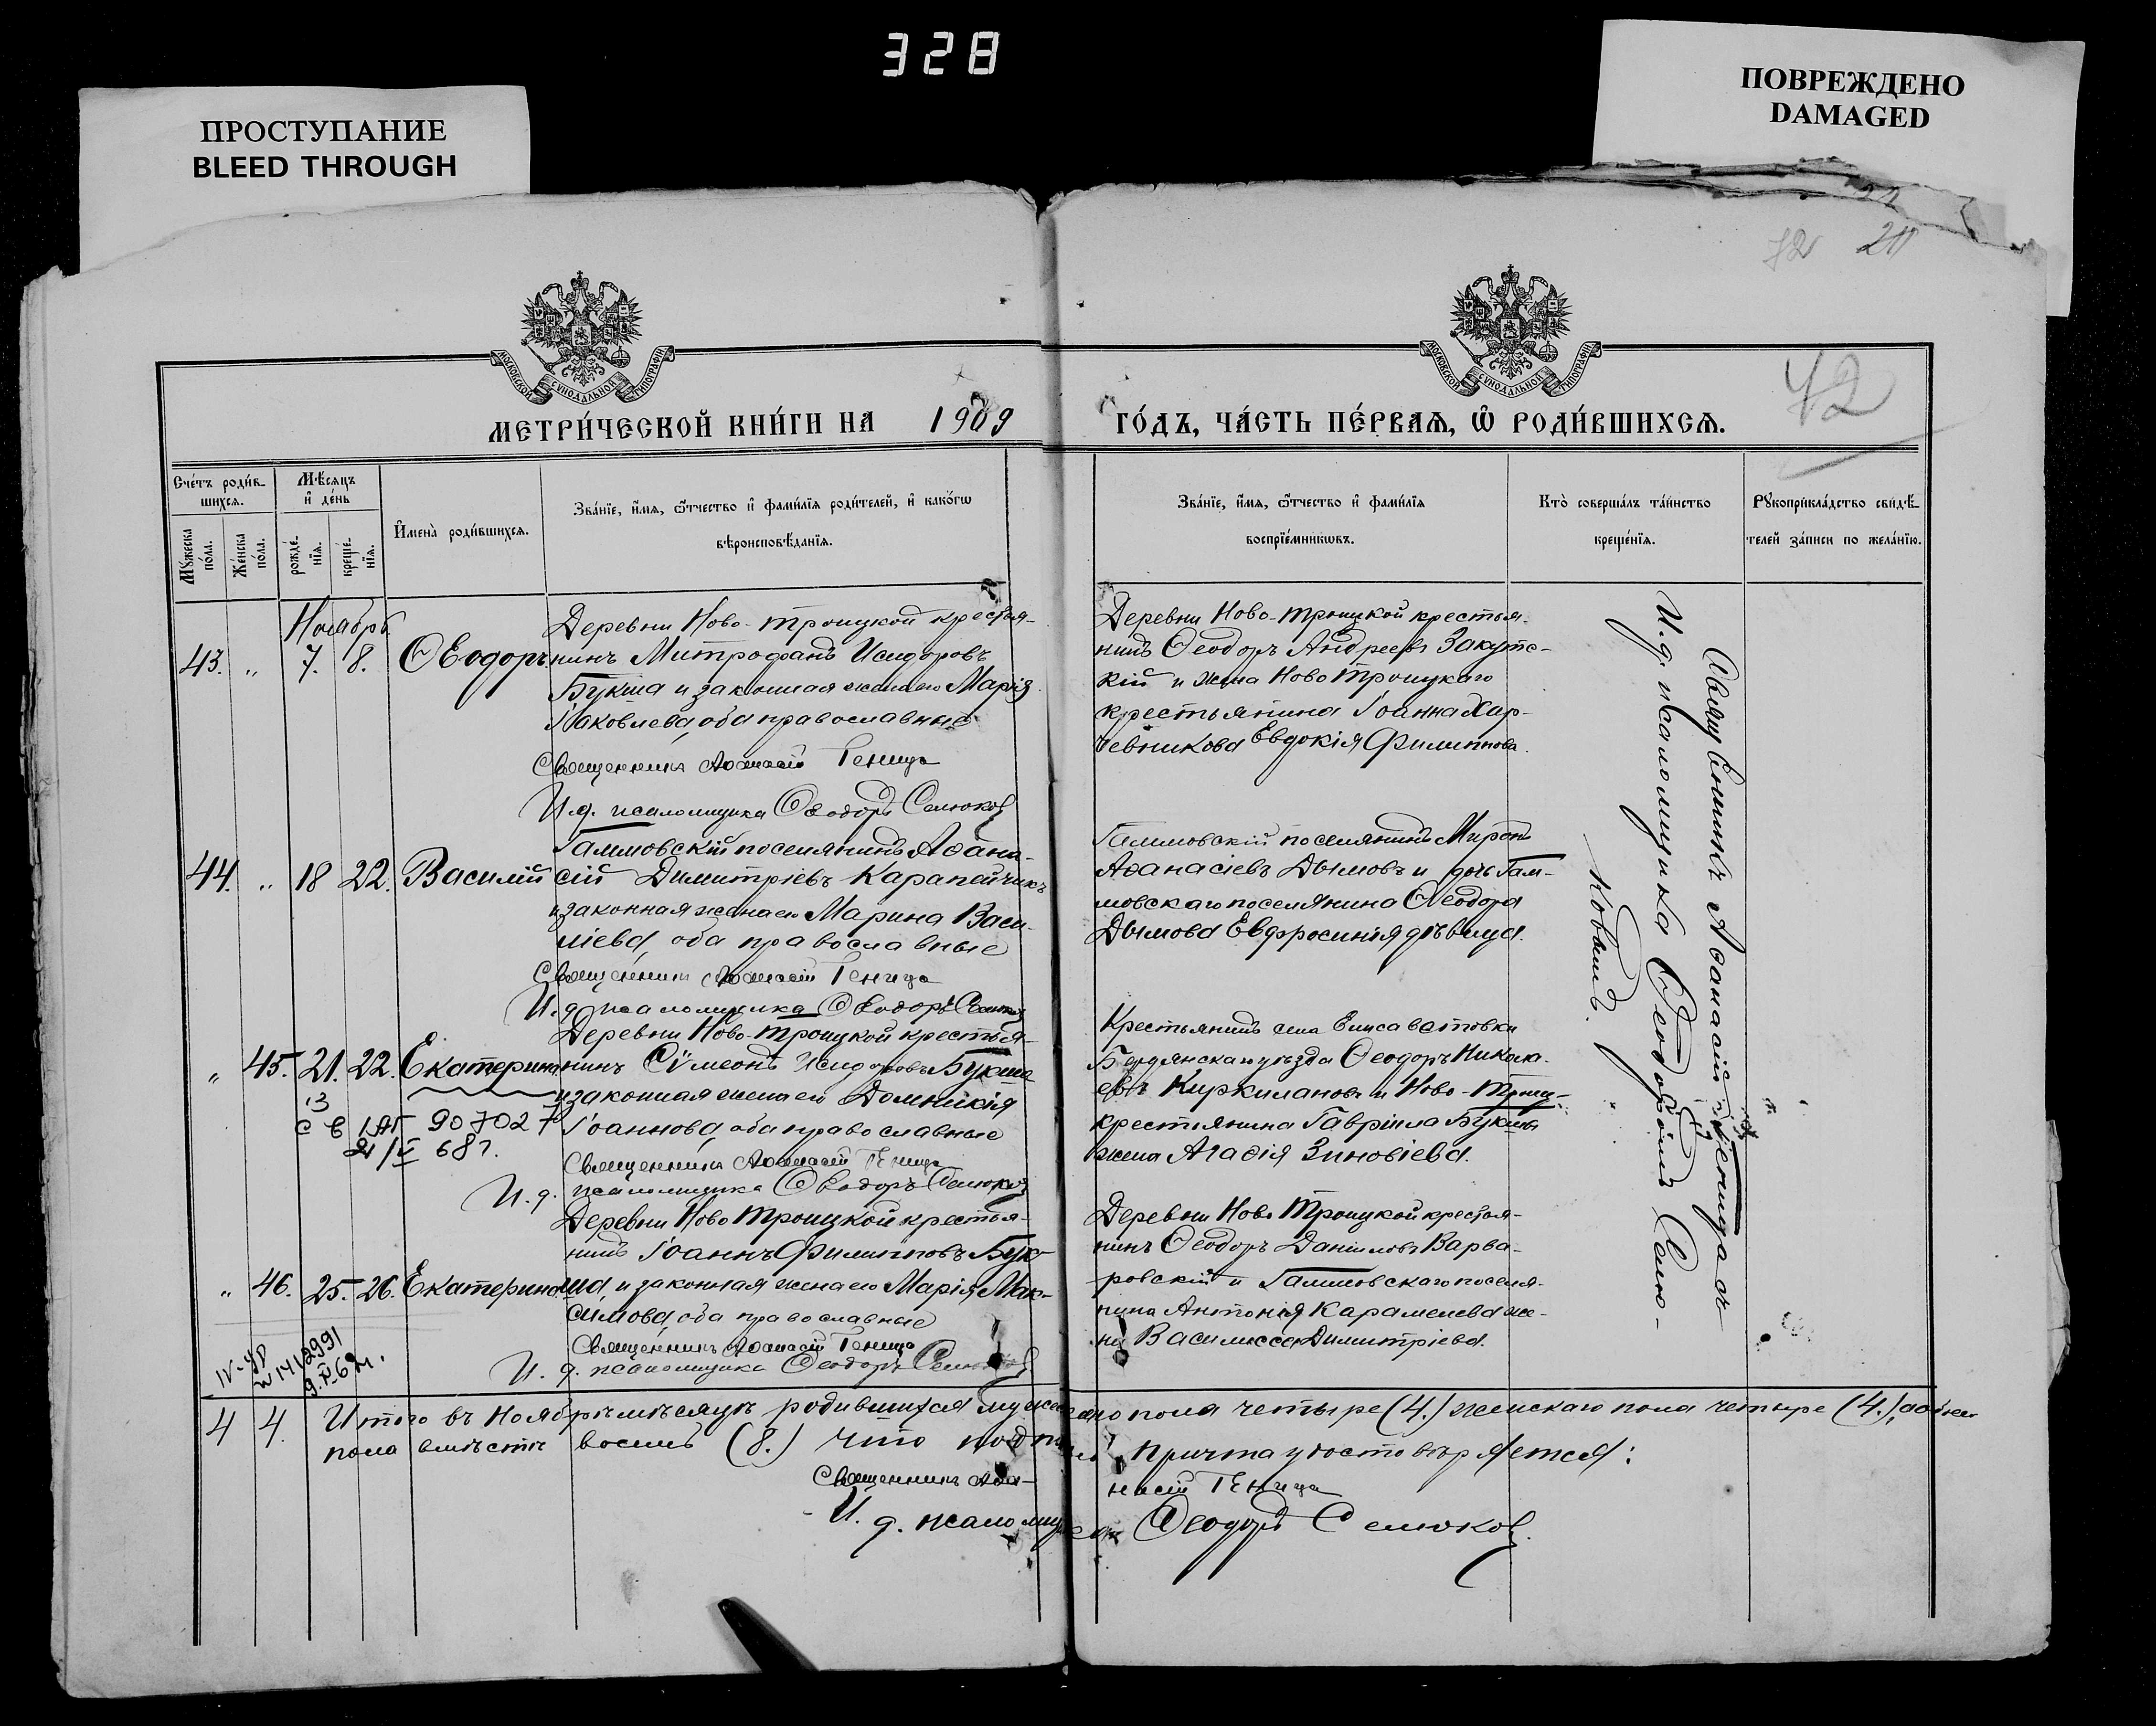 328
ПРОСТУПАНИЕ
BLEED THROUGH
ПОВРЕЖДЕНО
DAMAGED
72 211
42
МОСКОВСКОЙ СѴНОДАЛЬНОЙ ТИПОГРАФІИ
МОСКОВСКОЙ СѴНОДАЛЬНОЙ ТИПОГРАФІИ
МЕТРИ́ЧЕСКОЙ КНИ́ГИ НА 1909 ГО́ДЪ, ЧА́СТЬ ПЕ́РВАѦ, Ѡ҆ РОДИ́ВШИХСѦ.
Сче́тъ роди́в-
шихсѧ.
Мꙋжеска по́ла.
Же́нска по́ла.
Мѣ́сѧцъ и҆ де́нь
рожде́-нїѧ.
креще́-нїѧ.
И҆мена̀ роди́вшихсѧ.
Зва́нїе, и҆́мѧ, ѻ҆́тчество и҆ фами́лїѧ роди́телей, и҆ како́гѡ
вѣроисповѣ́данїѧ.
Зва́нїе, и҆́мѧ, ѻ҆́тчество и҆ фами́лїѧ
воспрїе́мникѡвъ.
Кто̀ соверша́лъ та́инство
креще́нїѧ.
Рꙋкоприкла́дство свидѣ́-
телей за́писи по жела́нїю.
Ноябрь
43. „ 7. 8. Ѳеодоръ
Деревни Ново-Троицкой крестья-
нинъ Митрофанъ Исидоровъ
Букша и законная жена его Марія
Іаковлева, оба православные
Священникъ Аѳанасій Геница
И.д. псаломщика Ѳеодоръ Селюковъ
Деревни Ново-Троицкой крестья-
нинъ Ѳеодоръ Андреевъ Закутс-
кій и жена Ново Троицкаго
крестьянина Іоанна Хар-
чевникова Евдокія Филиппова.
44. „ 18 22. Василій
Гаммовскій поселянинъ Аѳана-
сій Димитріевъ Карапейчикъ
и законная жена его Марина Васи-
ліева, оба православные
Священникъ Аѳанасій Геница
И.д. псаломщика Ѳеодоръ Селюковъ
Гаммовскій поселянинъ Миронъ
Аѳанасіевъ Дымовъ и дочь Гам-
мовскаго поселянина Ѳеодора
Дымова Евфросинія дѣвица.
„ 45. 21. 22. Екатерина
Деревни Ново-Троицкой крестья-
нинъ Сѵмеонъ Исидоровъ Букша
и законная жена его Домникія
Іоаннова, оба православные
Священникъ Аѳанасій Геница
И.д. псаломщика Ѳеодоръ Селюковъ
907027
68г.
Крестьянинъ села Елисаветовки
Бердянскаго уѣзда Ѳеодоръ Никола-
евъ Киркилановъ и Ново-Троиц-
крестьянина Гавріила Букши
жена Агаѳія Зиновіева.
„ 46. 25. 26. Екатерина
Деревни Ново Троицкой крестья-
нинъ Іоаннъ Филипповъ Бук-
ша, и законная жена его Марія Мак-
симова, оба православные
Священникъ Аѳанасій Геница
И.д. псаломщика Ѳеодоръ Селюковъ
Деревни Ново Троицкой крестья-
нинъ Ѳеодоръ Даніиловъ Варва-
ровскій и Гаммовскаго поселя-
нина Антонія Карамелева же-
на Василисса Димитріева.
Священникъ Аѳанасій Геница съ
И.д. псаломщика Ѳеодоромъ Селю-
ковымъ.
4 4. Итого въ Ноябрѣ мѣсяцѣ родившихся мужескаго пола четыре (4.) женскаго пола четыре (4.), обоего
пола вмѣстѣ восемь (8.) что подписью Причта удостовѣряется:
Священникъ Аѳа-насій Геница
И.д. псаломщика Ѳеодоръ Селюковъ.